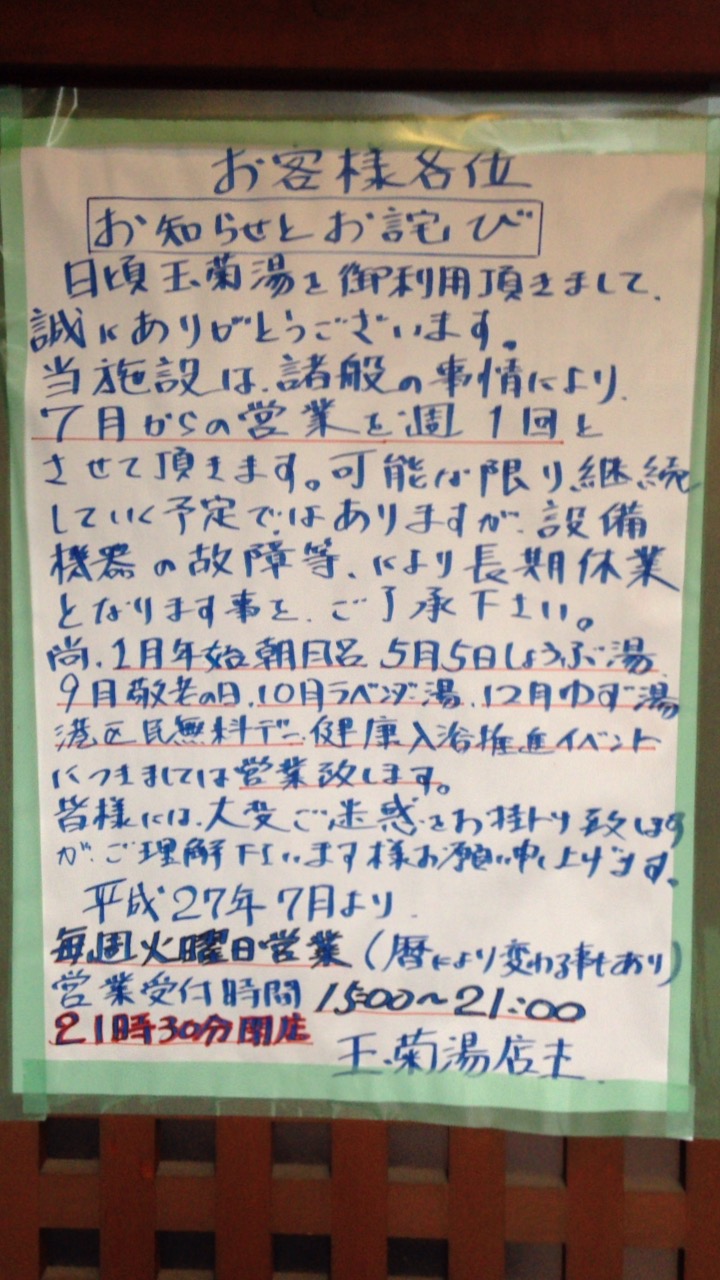 お客様各位
お知らせとお詫び
日頃玉菊湯を御利用頂きまして、
誠にありがとうございます。
当施設は、諸般の事情により、
7月からの営業を週1回と
させて頂きます。可能な限り、継続
していく予定ではありますが、設備
機器の故障等、により長期休業
となります事を、ご了承下さい。
尚、1月年始朝日名 5月5日しょうぶ湯、
9月敬老の日、10月ラベンダー湯、12月ゆず湯
港区民無料デー、健康入浴推進イベント
につきましては営業致します。
皆様には、大変ご迷惑をお掛け致します
が、ご理解下さいます様お願い申し上げます。
平成27年7月より、
毎週火曜日営業(暦により変わる事もあり)
営業受付時間 15:00～21:00
21時30分閉店
玉菊湯店主